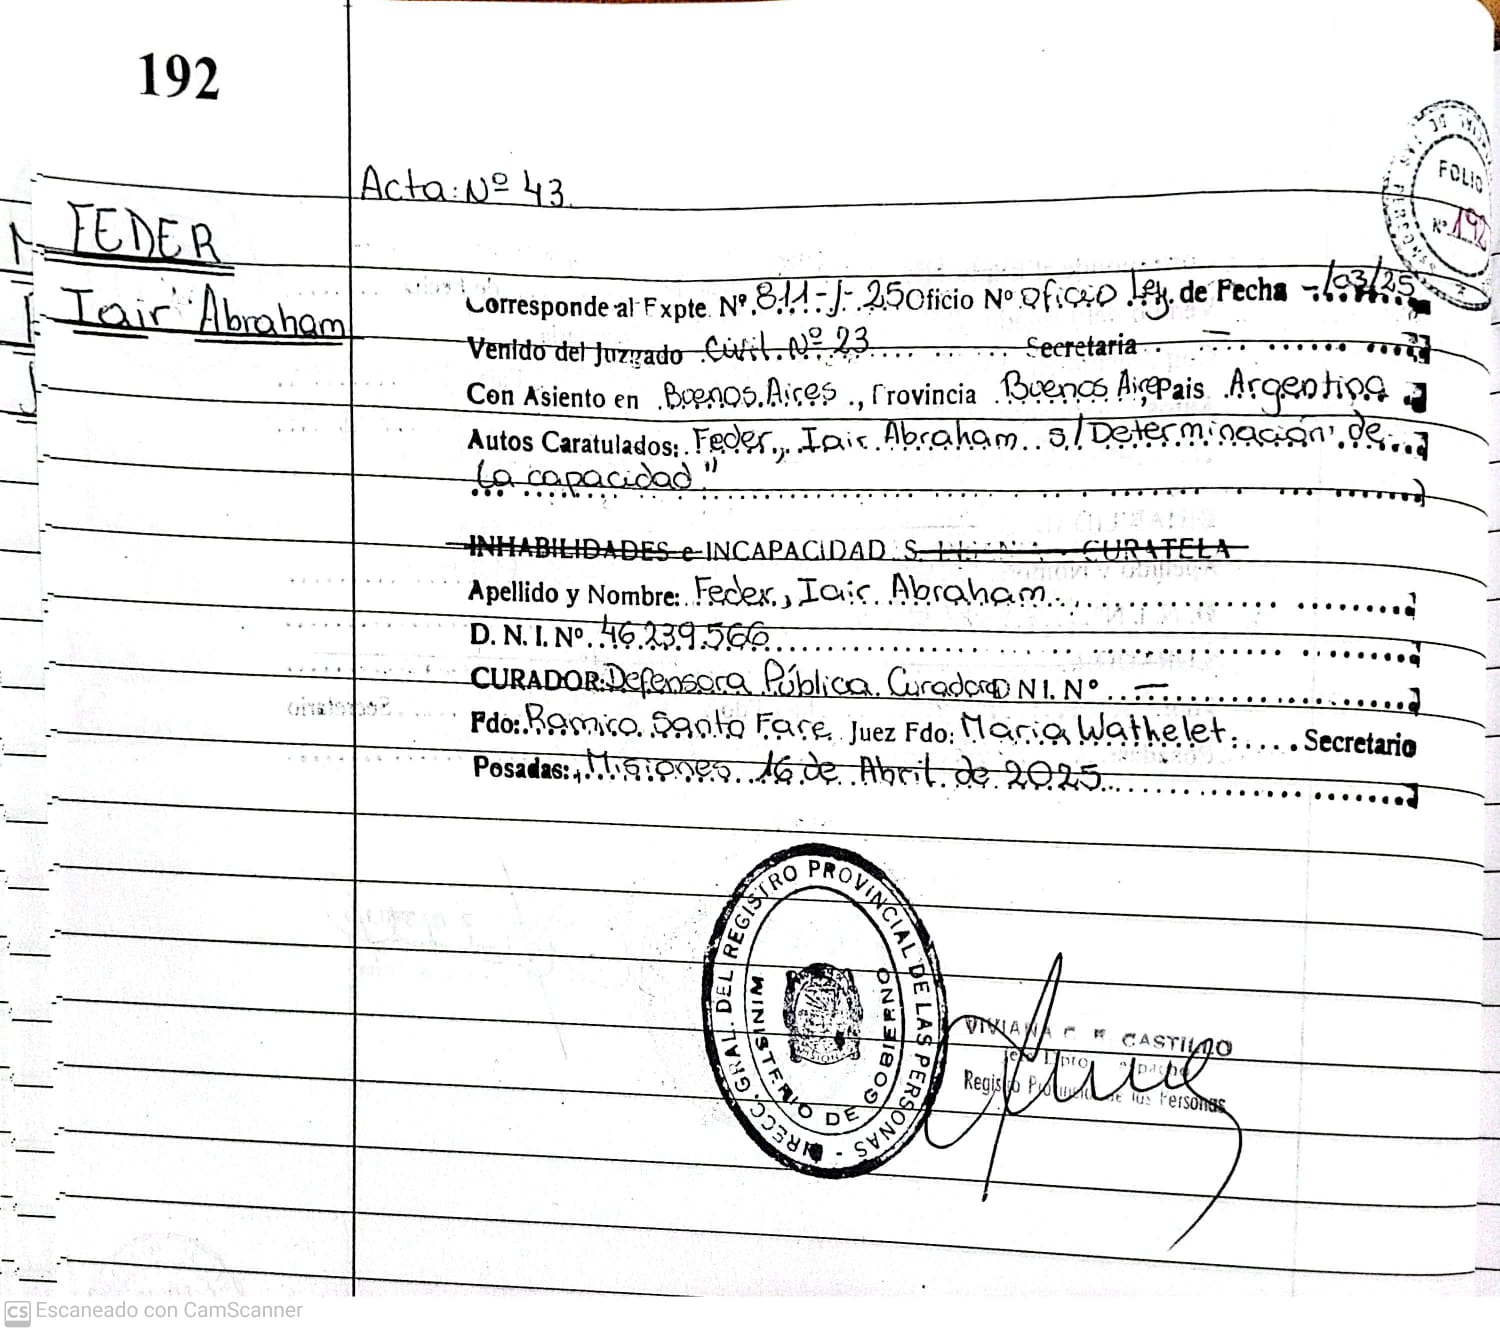 192
FOLIO
Nº 192
Acta: Nº 43
FEDER
Iair Abraham
Corresponde al Expte. Nº 811-J-25 Oficio Nº Oficio Ley. de Fecha -/03/25
Venido del Juzgado Civil. Nº 23 Secretaria —
Con Asiento en Buenos Aires, Provincia Buenos Aires Pais Argentina
Autos Caratulados: Feder, Iair Abraham s/ Determinación de
la capacidad"
INHABILIDADES e INCAPACIDAD S CURATELA
Apellido y Nombre: Feder, Iair Abraham
D. N. I. Nº 46.239.566
CURADOR: Defensora Pública Curadora D NI. Nº —
Fdo: Ramiro Santo Fare Juez Fdo: Maria Wathelet. Secretario
Posadas:, Misiones 16 de Abril de 2025
DIRECC. GRAL. DEL REGISTRO PROVINCIAL DE LAS PERSONAS -
MINISTERIO DE GOBIERNO
VIVIANA C. CASTILLO
Registro Provincial de las Personas
CS Escaneado con CamScanner